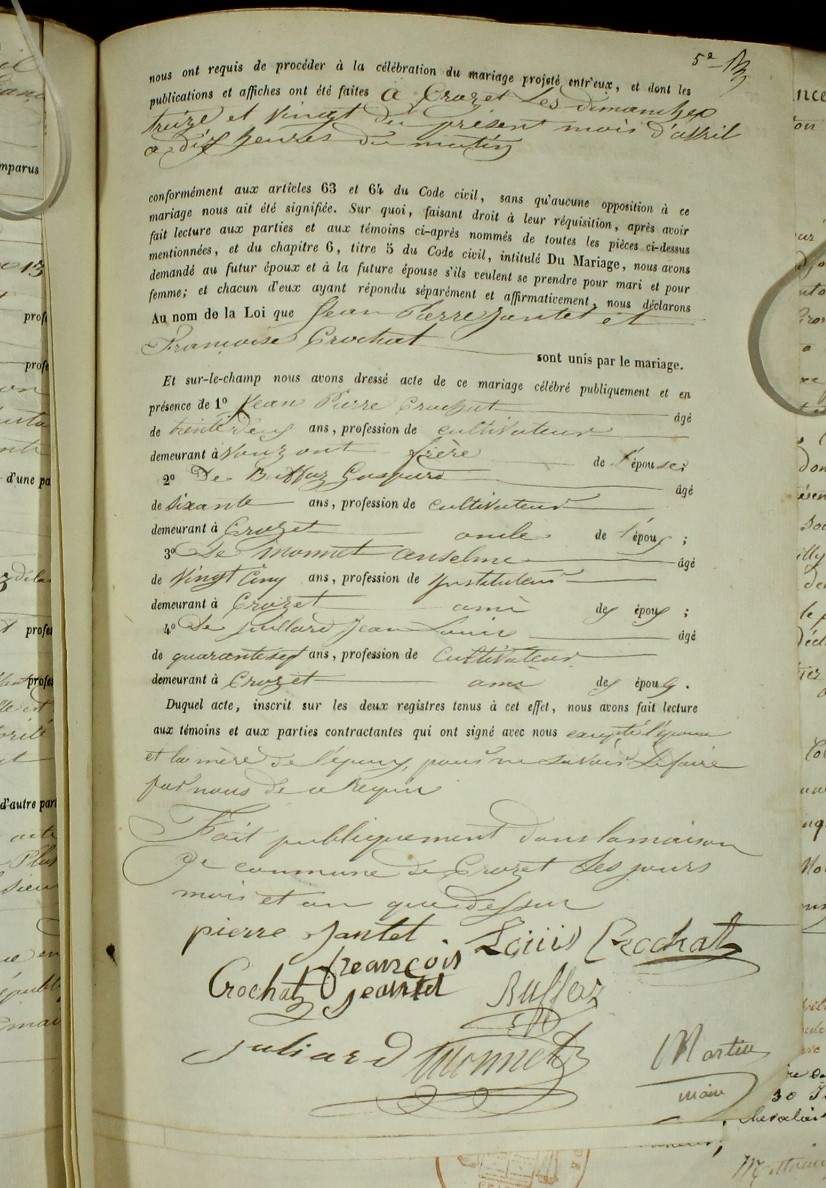 5e
nous ont requis de procéder à la célébration du mariage projeté entr'eux, et dont les
publications et affiches ont été faites à Crozet les dimanches
treize et vingt du présent mois d'avril
à dix heures du matin
conformément aux articles 63 et 64 du Code civil, sans qu'aucune opposition à ce
mariage nous ait été signifiée. Sur quoi, faisant droit à leur réquisition, après avoir
fait lecture aux parties et aux témoins ci-après nommés de toutes les pièces ci-dessus
mentionnées, et du chapitre 6, titre 5 du Code civil, intitulé Du Mariage, nous avons
demandé au futur époux et à la future épouse s'ils veulent se prendre pour mari et pour
femme; et chacun d'eux ayant répondu séparément et affirmativement, nous déclarons
Au nom de la Loi que Jean Pierre Jantet et
Françoise Crochat sont unis par le mariage.
Et sur-le-champ nous avons dressé acte de ce mariage célébré publiquement et en
présence de 1º Jean Pierre Crochat âgé
de trente deux ans, profession de cultivateur
demeurant à frère de l'épouse;
2º De Buffaz Gaspard âgé
de sixante ans, profession de cultivateur
demeurant à Crozet oncle de l'époux;
3º De Monnet Anselme âgé
de vingt cinq ans, profession de Instituteur
demeurant à Crozet ami des époux;
4º De Julliard Jean Louis âgé
de quarante sept ans, profession de Cultivateur
demeurant à Crozet ami des époux.
Duquel acte, inscrit sur les deux registres tenus à cet effet, nous avons fait lecture
aux témoins et aux parties contractantes qui ont signé avec nous excepté l'épouse
et la mère de l'époux, pour ne savoir le faire
par nous de ce Requis
Fait publiquement dans la maison
de commune de Crozet les jours
mois et an que dessus
pierre Jantet Louis Crochat
Crochat françois Jeantet Buffaz
juliard Monnet Martin
maire